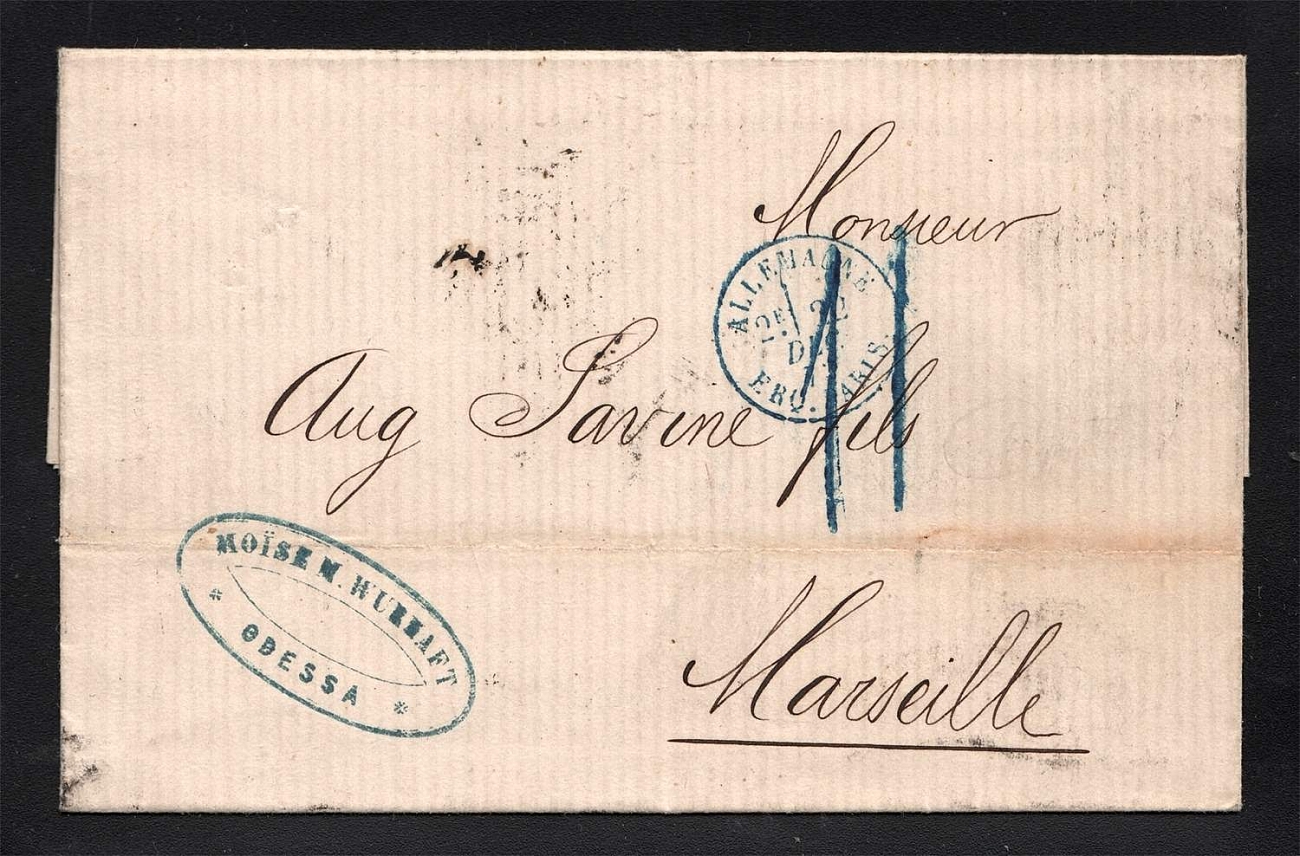 Monsieur
ALLEMAGNE
2E
22
ERQ. PARIS
11
Aug Savine fils
MOÏSE M. WURHAFT
ODESSA
Marseille